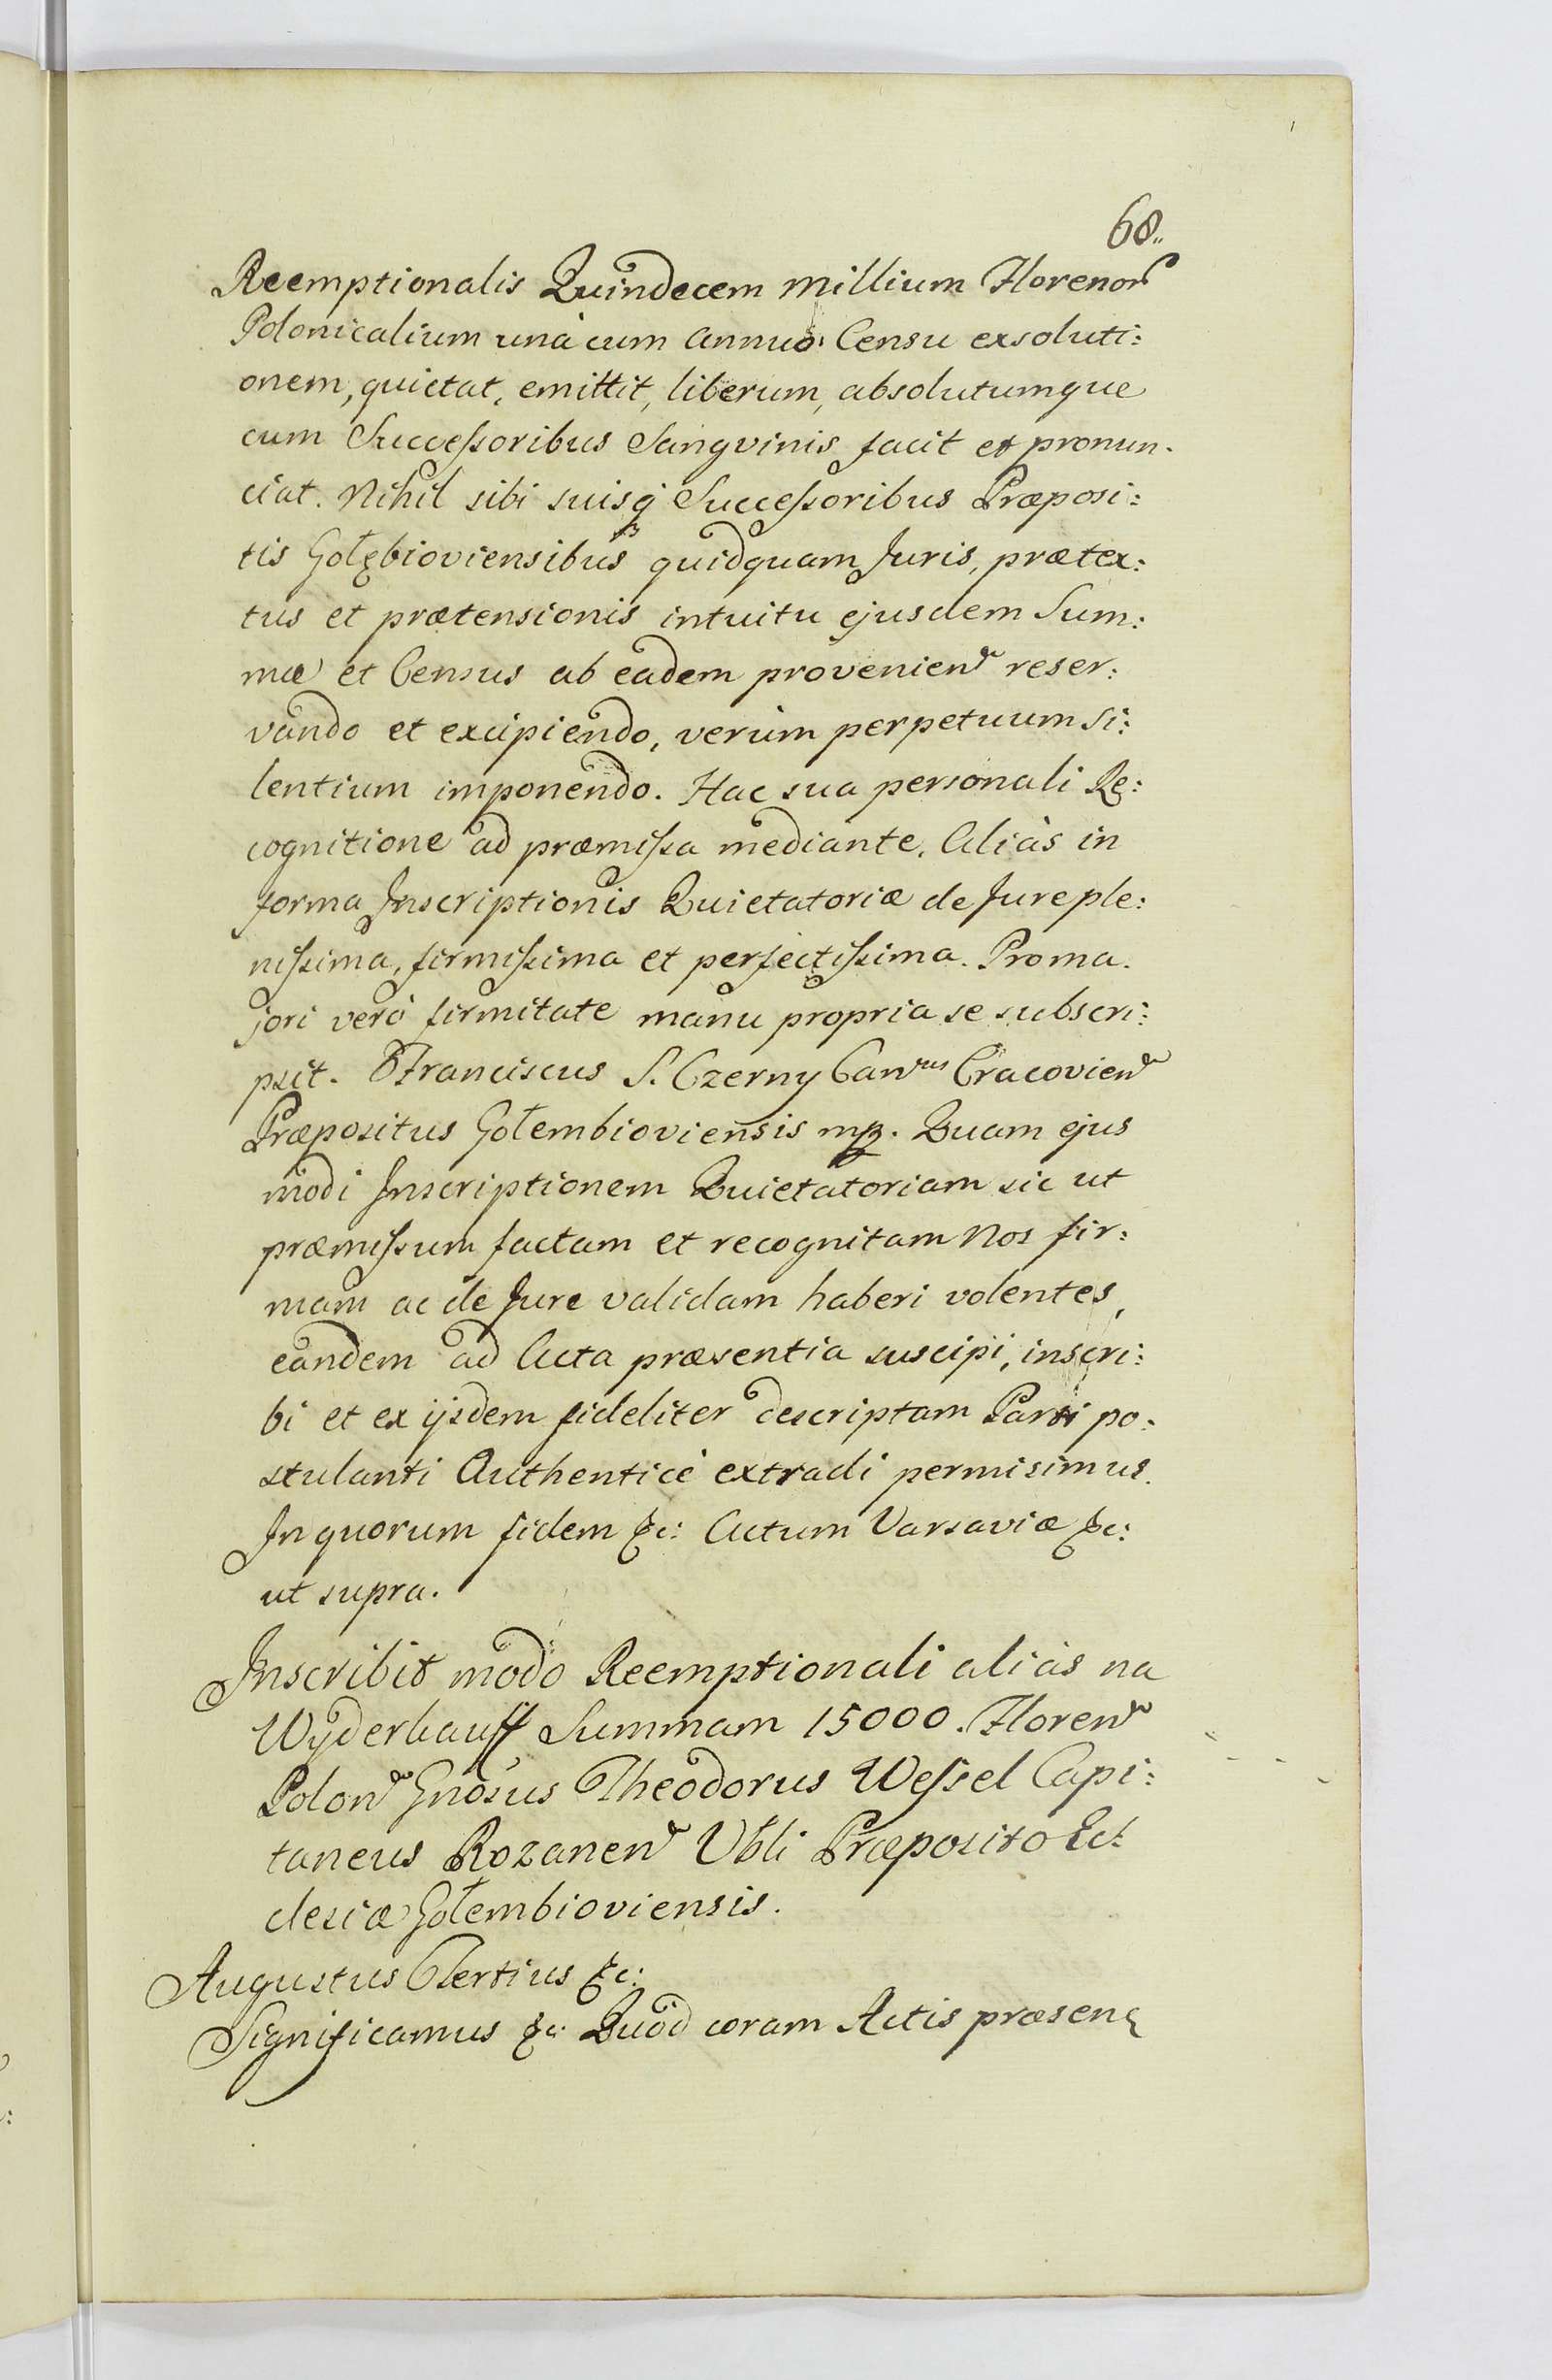 68.
Reemptionalis Quindecem Millium Florenor
Polonicalium unà cum annuo Censu exsoluti:
onem, quietat, emittit, liberum, absolutumque
cum Succeſsoribus Sangvinis facit et pronun.
ciat. Nihil sibi suisq Succeſsoribus Præposi:
tis Gołębioviensibus quidquam Juris, prætex:
tus et prætensionis intuitu ejusdem Sum:
mæ et Census ab eadem provenien reser:
vando et excipiendo, verùm perpetuum Si:
lentium imponendo. Hac sua personali Re:
cognitione ad præmiſsa mediante. Aliàs in
forma Inscriptionis Quietatoriæ de Jure ple:
niſsima, firmiſsima et perfectiſsima. Pro ma.
jori verò firmitate manu propria se subscri:
psit. Franciscus S. Czerny Can^cus Cracovien
Præpositus Gołembioviensis mp. Quam ejus
modi Inscriptionem Quietatoriam sic ut
præmiſsum factam et recognitam Nos fir:
mam ac de Jure validam haberi volentes,
eandem ad Acta præsentia suscipi, inscri:
bi et ex ijsdem fideliter descriptam Parti po:
stulanti Authenticè extradi permisimus.
In quorum fidem &c: Actum Varsaviæ &c:
ut supra.
Inscribit modo Reemptionali aliàs na
Wyderkauff Summam 15000. Floren
Polon Gnosus Theodorus Weſsel Capi:
taneus Rozanen Vbli Præposito Ec:
clesiæ Gołembioviensis.
Augustus Tertius &c:
Significamus &c: Quòd coram Actis præsen